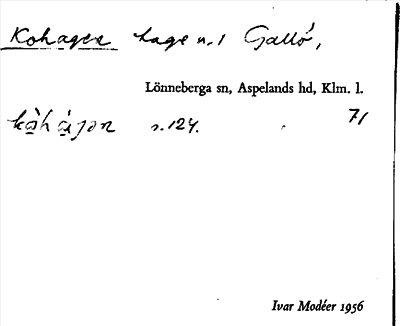 Kohagen hage n. 1 Gallö,
Lönneberga sn, Aspelands hd, Klm. l.
s. 124. 71
Ivar Modéer 1956